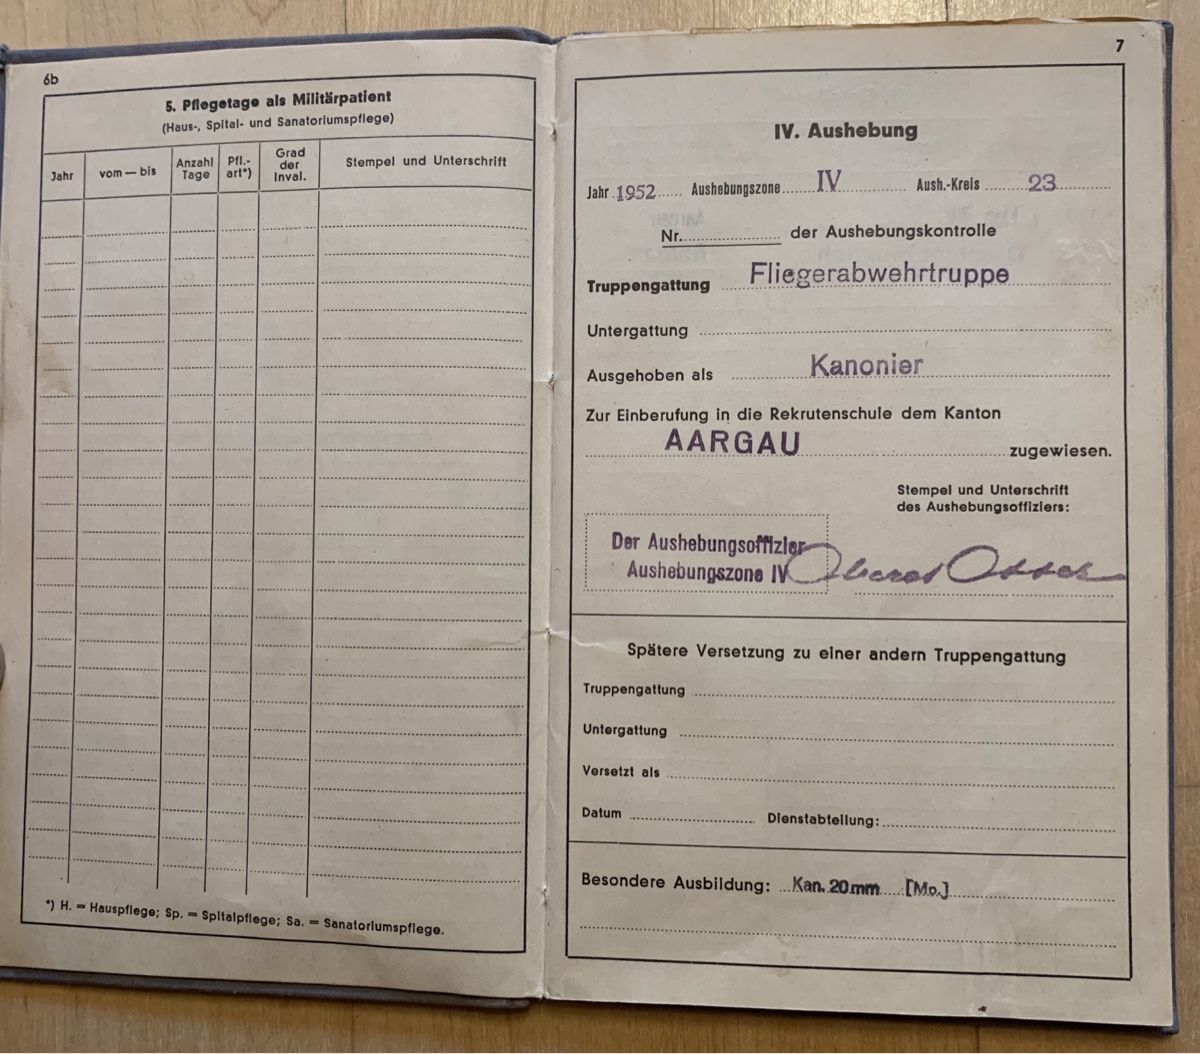 6b
5. Pflegetage als Militärpatient
(Haus-, Spital- und Sanatoriumspflege)
Jahr
vom — bis
Anzahl Tage
Pfl.-art*)
Grad der Inval.
Stempel und Unterschrift
*) H. = Hauspflege; Sp. = Spitalpflege; Sa. = Sanatoriumspflege.
7
IV. Aushebung
Jahr 1952 Aushebungszone IV Aush.-Kreis 23
Nr. der Aushebungskontrolle
Truppengattung Fliegerabwehrtruppe
Untergattung
Ausgehoben als Kanonier
Zur Einberufung in die Rekrutenschule dem Kanton
AARGAU zugewiesen.
Stempel und Unterschrift
des Aushebungsoffiziers:
Der Aushebungsoffizier
Aushebungszone IV Oberst
Spätere Versetzung zu einer andern Truppengattung
Truppengattung
Untergattung
Versetzt als
Datum Dienstabteilung:
Besondere Ausbildung: Kan. 20mm [Mo.]